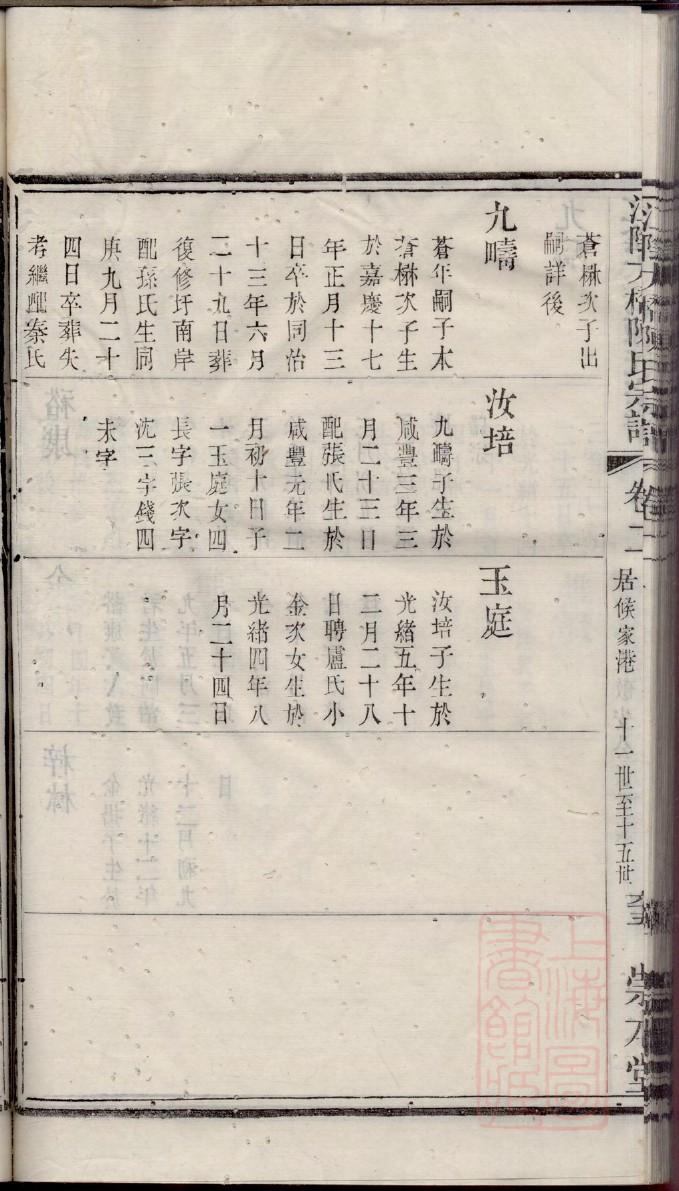 蒼楙次子出
嗣詳後
九疇
蒼年嗣子本
蒼楙次子生
於嘉慶十七
年正月十三
日卒於同治
十三年六月
二十九日葬
復修圩南岸
配孫氏生同
庚九月二十
四日卒葬失
考繼配秦氏
汝培
九疇子生於
咸豐三年三
月二十三日
配張氏生於
咸豐元年二
月初十日子
一玉庭女四
長字張次字
沈三字錢四
未字
玉庭
汝培子生於
光緒五年十
二月二十八
日聘盧氏小
金次女生於
光緒四年八
月二十四日
陳氏宗譜
卷二
居候家港
十一世至十五世
崇本堂
上海圖書館藏